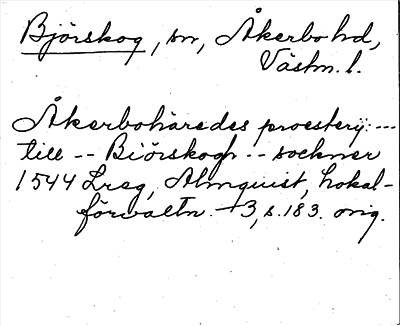 Björskog, sn, Åkerbo hd,
Västm. l.
Åkerbohäredes proesterij ---
till -- Biörskogh -- sockner
1544 Lreg, Almquist, Lokal-
förvaltn. 3, s. 183. orig.